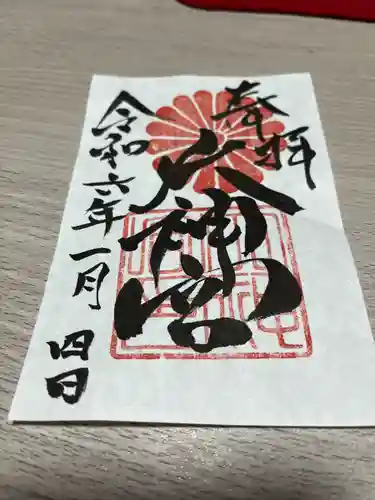 奉拝
大神宮
令和六年一月四日